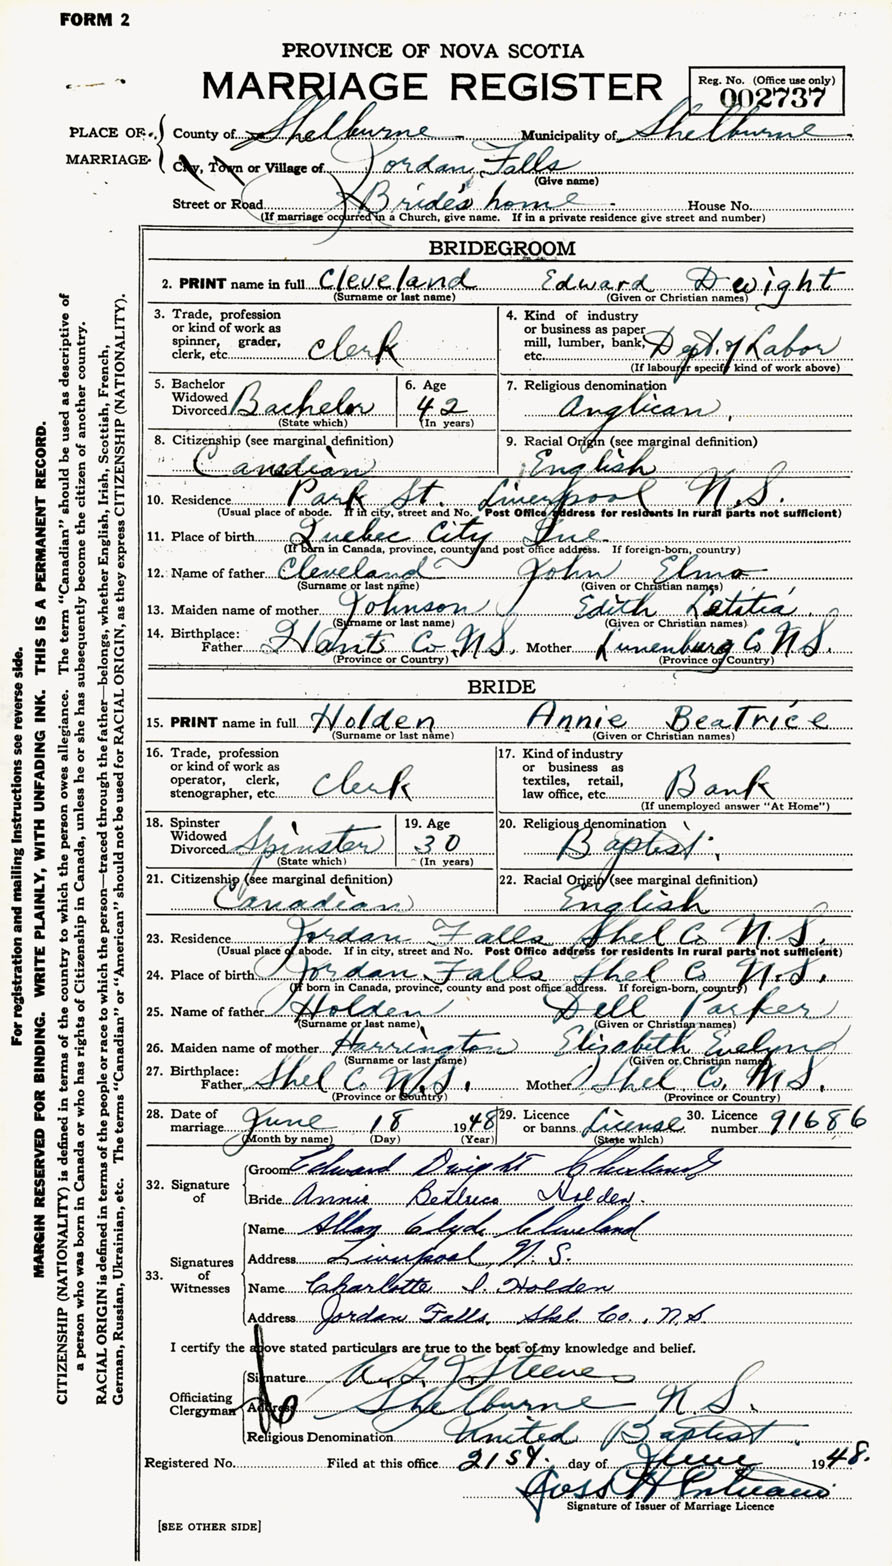 FORM 2
PROVINCE OF NOVA SCOTIA
MARRIAGE REGISTER
Reg. No. (Office use only)
002737
PLACE OF MARRIAGE
County of Shelburne Municipality of Shelburne
City, Town or Village of Jordan Falls
(Give name)
Street or Road Bride's home House No.
(If marriage occurred in a Church, give name. If in a private residence give street and number)
BRIDEGROOM
2. PRINT name in full Cleveland Edward Dwight
(Surname or last name) (Given or Christian names)
3. Trade, profession or kind of work as spinner, grader, clerk, etc. Clerk
4. Kind of industry or business as paper mill, lumber, bank, etc. Dept. of Labor
(If labourer specify kind of work above)
5. Bachelor Widowed Divorced Bachelor
(State which)
6. Age 42
(In years)
7. Religious denomination
Anglican,
8. Citizenship (see marginal definition)
Canadian
9. Racial Origin (see marginal definition)
English
10. Residence Park St. Liverpool N.S.
(Usual place of abode. If in city, street and No. Post Office address for residents in rural parts not sufficient)
11. Place of birth Quebec City Que.
(If born in Canada, province, county and post office address. If foreign-born, country)
12. Name of father Cleveland John Elmo
(Surname or last name) (Given or Christian names)
13. Maiden name of mother Johnson Edith Letitia
(Surname or last name) (Given or Christian names)
14. Birthplace:
Father Hants Co N.S. Mother Lunenburg Co N.S.
(Province or Country) (Province or Country)
BRIDE
15. PRINT name in full Holden Annie Beatrice
(Surname or last name) (Given or Christian names)
16. Trade, profession or kind of work as operator, clerk, stenographer, etc. Clerk
17. Kind of industry or business as textiles, retail, law office, etc. Bank
(If unemployed answer "At Home")
18. Spinster Widowed Divorced Spinster
(State which)
19. Age 30
(In years)
20. Religious denomination
Baptist,
21. Citizenship (see marginal definition)
Canadian
22. Racial Origin (see marginal definition)
English
23. Residence Jordan Falls Shel Co N.S.
(Usual place of abode. If in city, street and No. Post Office address for residents in rural parts not sufficient)
24. Place of birth Jordan Falls Shel Co N.S.
(If born in Canada, province, county and post office address. If foreign-born, country)
25. Name of father Holden Dell Parker
(Surname or last name) (Given or Christian names)
26. Maiden name of mother Harrington Elizabeth Evelyn
(Surname or last name) (Given or Christian names)
27. Birthplace:
Father Shel Co N.S. Mother Shel Co. N.S.
(Province or Country) (Province or Country)
28. Date of marriage June 18 1948
(Month by name) (Day) (Year)
29. Licence or banns License
(State which)
30. Licence number 91686
32. Signature of
Groom Edward Dwight Cleveland
Bride Annie Beatrice Holden.
33. Signatures of Witnesses
Name Allan Clyde Cleveland
Address Liverpool, N.S.
Name Charlotte I. Holden
Address Jordan Falls, Shel. Co., N.S.
I certify the above stated particulars are true to the best of my knowledge and belief.
Officiating Clergyman
Signature Steeves
Address Shelburne N.S.
Religious Denomination United Baptist
Registered No. Filed at this office 21st. day of June 1948.
Signature of Issuer of Marriage Licence
[SEE OTHER SIDE]
For registration and mailing instructions see reverse side.
MARGIN RESERVED FOR BINDING. WRITE PLAINLY, WITH UNFADING INK. THIS IS A PERMANENT RECORD.
CITIZENSHIP (NATIONALITY) is defined in terms of the country to which the person owes allegiance. The term "Canadian" should be used as descriptive of
a person who was born in Canada or who has rights of Citizenship in Canada, unless he or she has subsequently become the citizen of another country.
RACIAL ORIGIN is defined in terms of the people or race to which the person—traced through the father—belongs, whether English, Irish, Scottish, French,
German, Russian, Ukrainian, etc. The terms "Canadian" or "American" should not be used for RACIAL ORIGIN, as they express CITIZENSHIP (NATIONALITY).